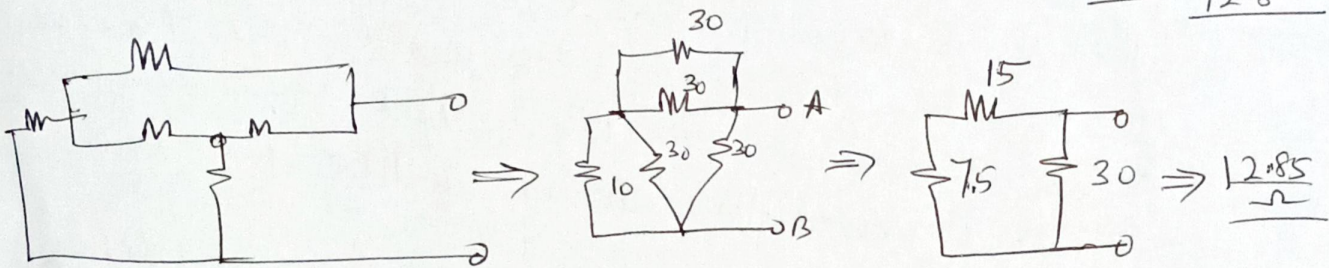 30
30
A
10
30
30
B
15
7.5
30
12.85
Ω